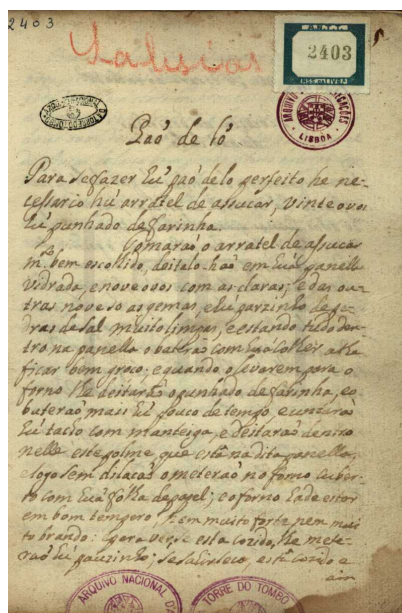 2403
Salesias
2403
ARQUIVO
LISBOA
Paó de ló
Para se fazer hú paó de lo perfeito he ne-
cessario hú arratel de assucar, vinte ovos
hú punhado de farinha.
Tomaraó o arratel de assucar
m.to bem escolhido, deitalo-haó em huá panella
vidrada, e nove ovos com as claras; e das ou-
tras nove so as gemas, e hú garzinho de pe-
dras de sal muito limpas, e estando tudo den-
tro na panella o bateraó com huá colher athe
ficar bem groço; e quando o levarem para o
forno lhe deitaraó o punhado de farinha, e o
bateraó mais hú pouco de tempo, e untaraó
hú tacho com manteiga, e deitaraó dentro
nelle este polme que está na dita panella,
e logo sem dilacaó o meteraó no forno cuber-
to com huá folha de papel; e o forno hade estar
em bom tempero, nem muito forte nem mui
to brando: e para ver se esta cozido, lhe mete-
raó hú pauzinho; se sahir seco, está cozido e
ARQUIVO NACIONAL DA
TORRE DO TOMBO